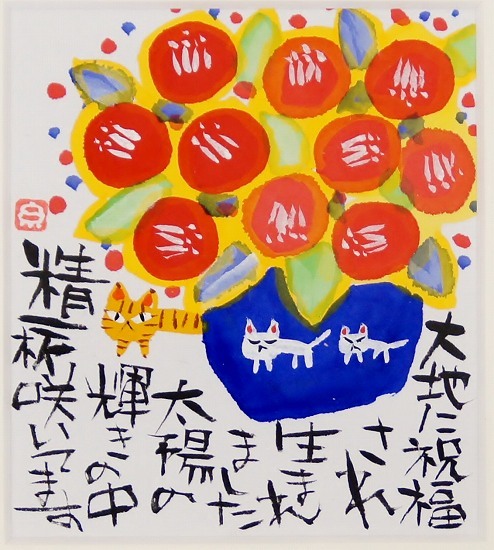 大地に祝福
され
生まれ
ました
太陽の
輝きの中
精一杯
咲いてます